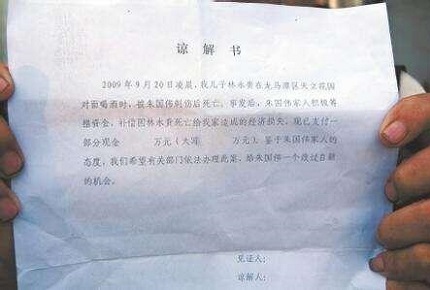 谅解书
2009年9月20日凌晨，我儿子林永贵在龙马潭区天立花园
对面喝酒时，被朱国伟刺伤后死亡，事发后，朱国伟家人积极筹
措资金，补偿因林永贵死亡给我家造成的经济损失，现已支付一
部分现金 万元（大写 万元）。鉴于朱国伟家人的
态度，我们希望有关部门依法办理此案，给朱国伟一个改过自新
的机会。
见证人：
谅解人：